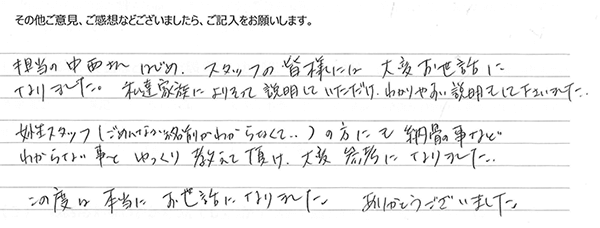 その他ご意見、ご感想などございましたら、ご記入をお願いします。
担当の中西さん はじめ、スタッフの皆様には 大変お世話に
なりました。私達家族により そって 説明して いただけ、わかりやすい説明をして下さいました。
女性スタッフ(ごめんなさい名前がわからなくて..)の方にも 納骨の事など
わからない事を ゆっくり 教えて頂け、大変 参考に なりました。
この度は 本当に お世話になりました ありがとうございました